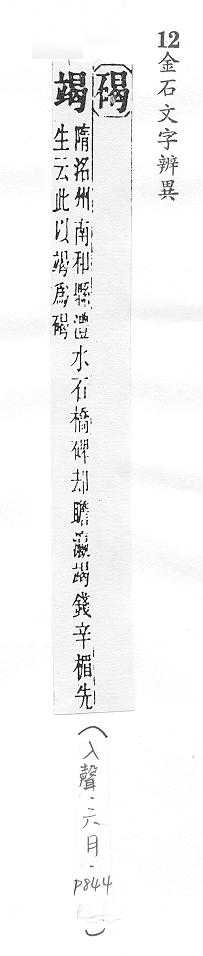 12金石文字辨異
碣
竭
隋洺州南和縣澧水石橋碑却瞻瀛竭錢辛楣先
生云此以竭爲碣
(入聲.六月.P844)